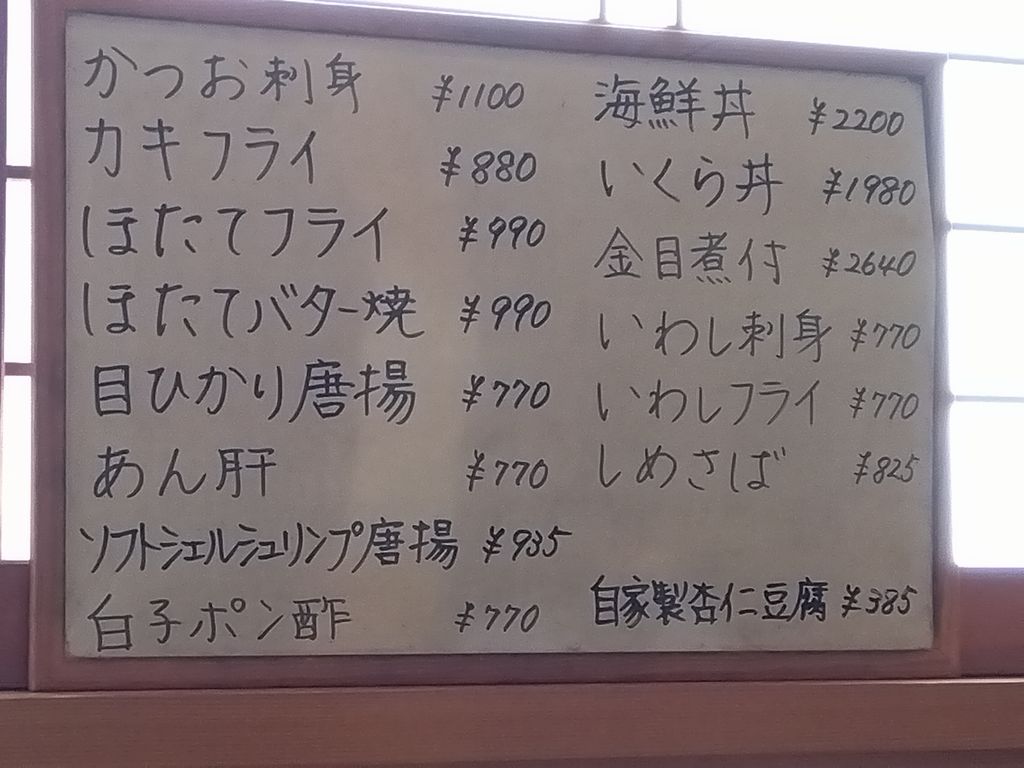 かつお刺身 ¥1100
カキフライ ¥880
ほたてフライ ¥990
ほたてバター焼 ¥990
目ひかり唐揚 ¥770
あん肝 ¥770
ソフトシェルシュリンプ唐揚 ¥935
白子ポン酢 ¥770
海鮮丼 ¥2200
いくら丼 ¥1980
金目煮付 ¥2640
いわし刺身 ¥770
いわしフライ ¥770
しめさば ¥825
自家製杏仁豆腐 ¥385